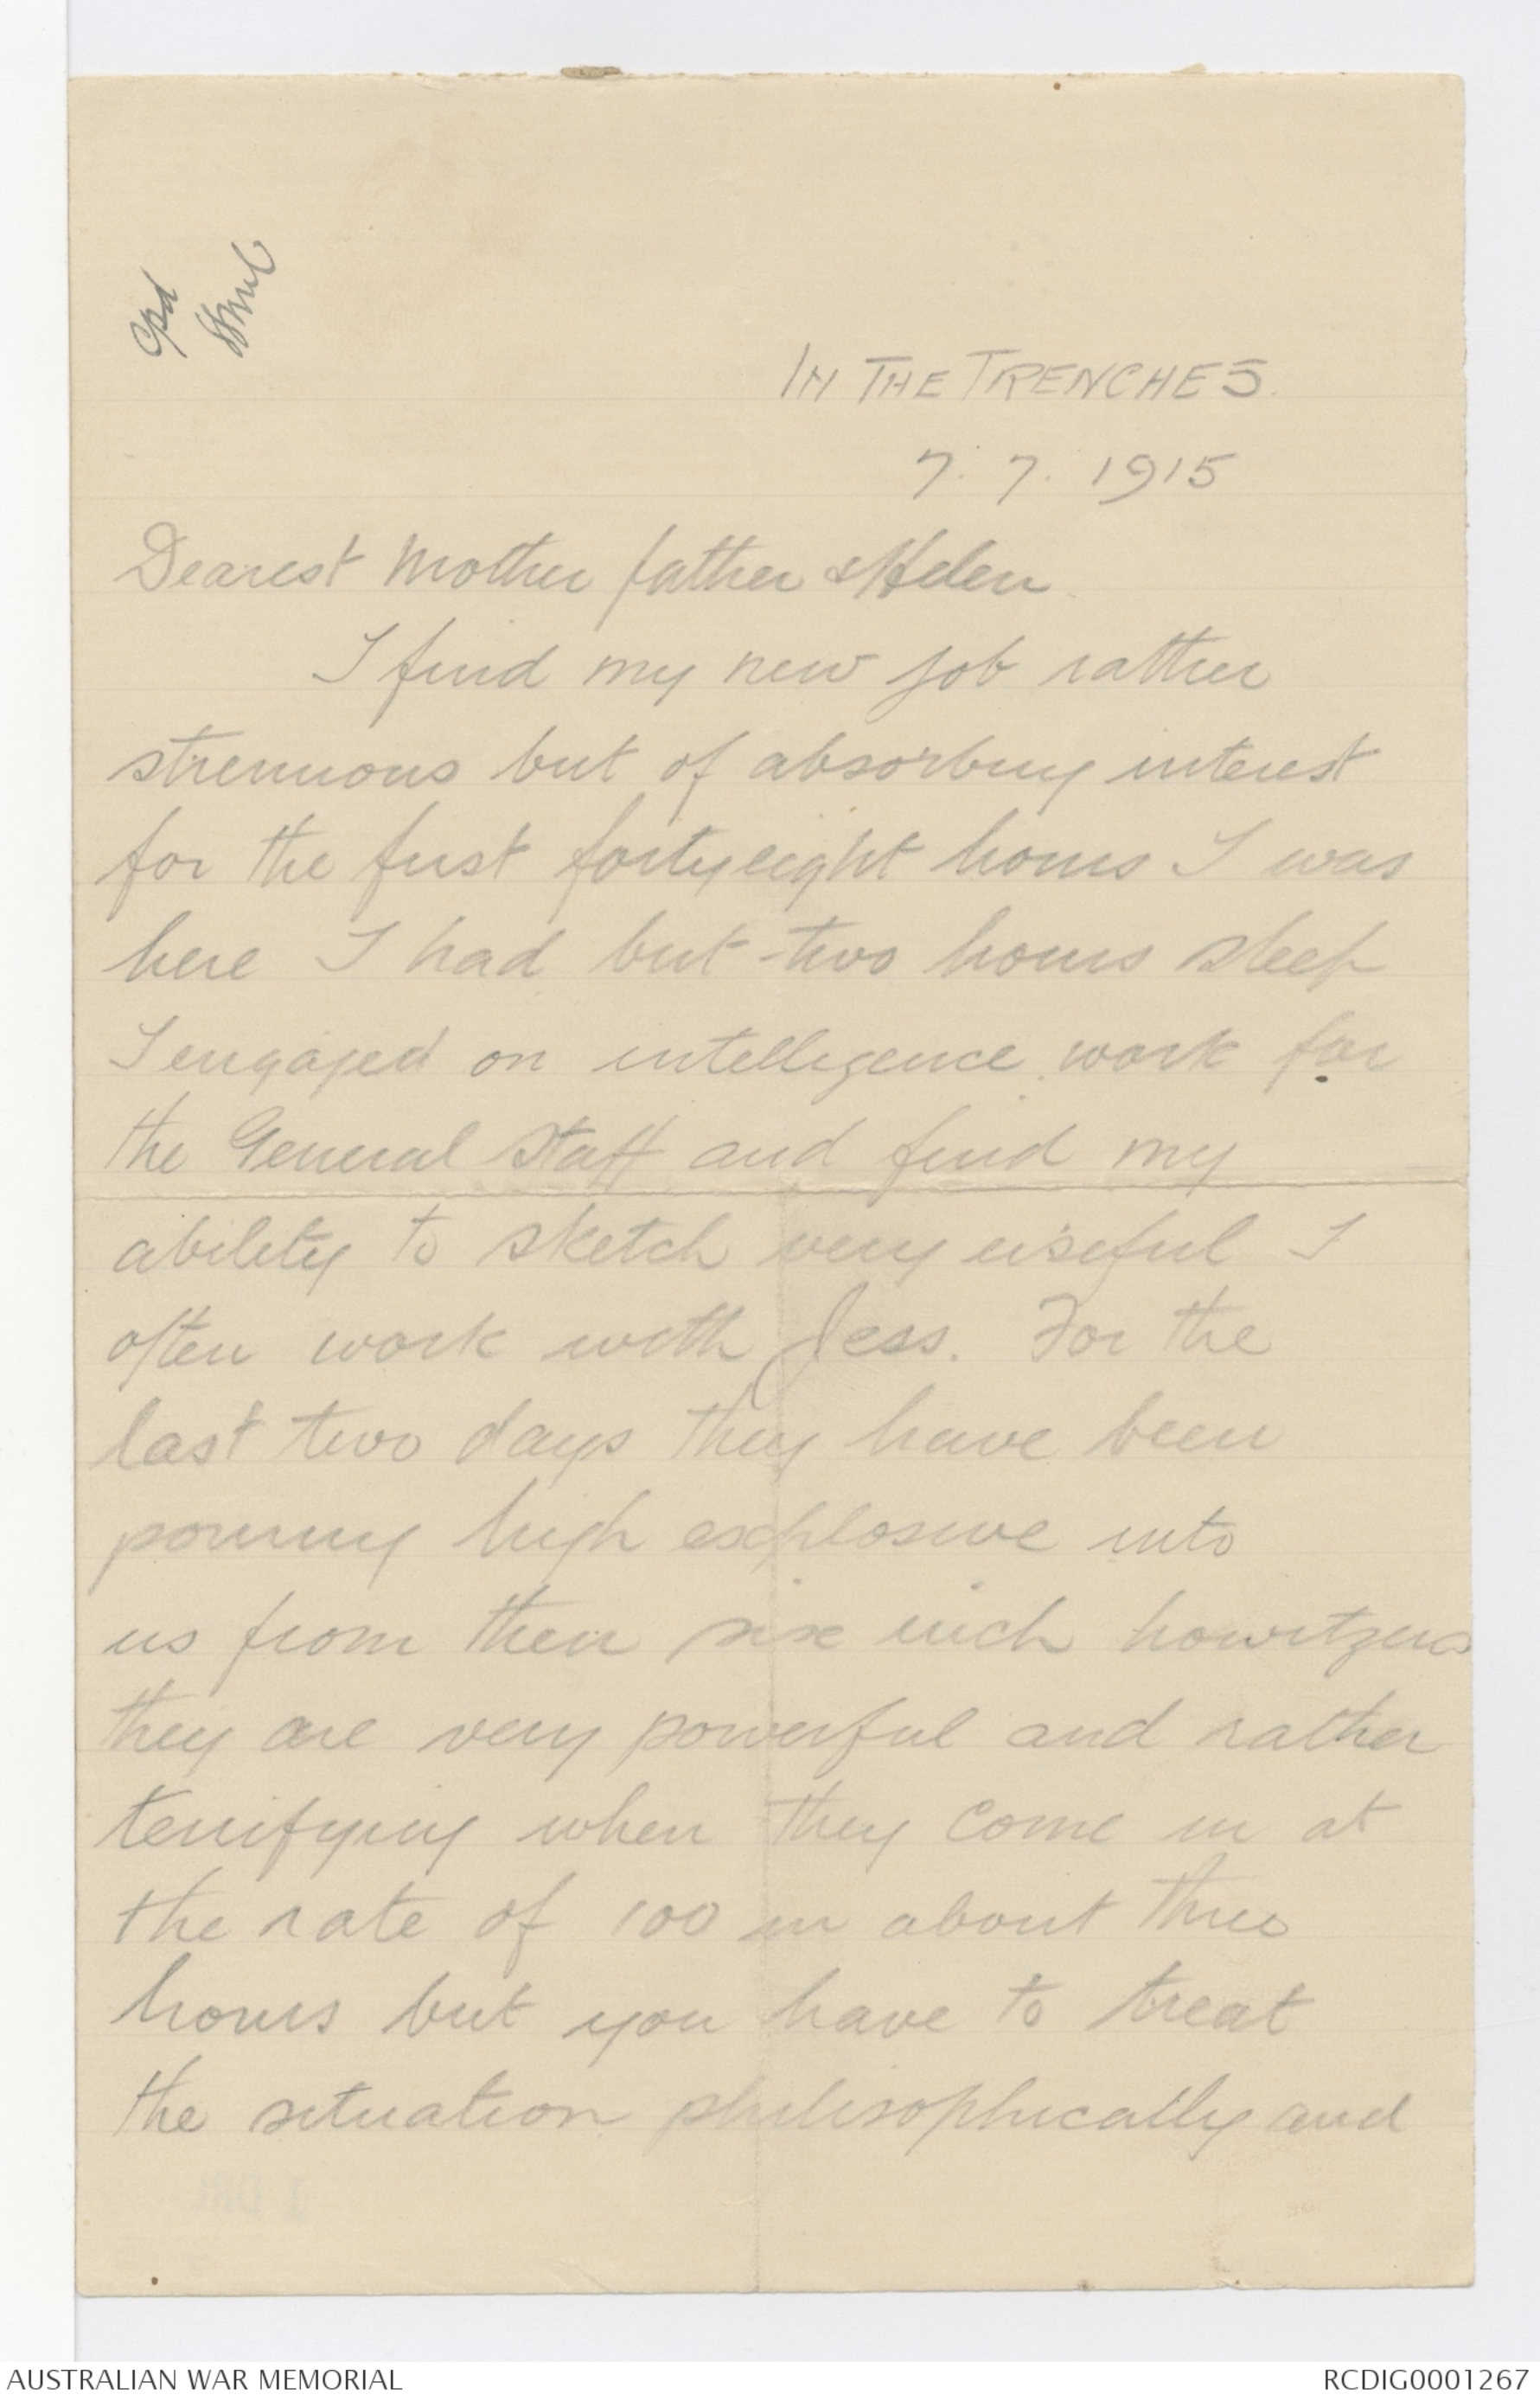 Cpd
IN THE TRENCHES.
7. 7. 1915
Dearest Mother father & Helen
I find my new job rather
strenuous but of absorbing interest
for the first forty eight hours I was
here I had but two hours sleep
I engaged on intelligence work for
the General Staff and find my
ability to sketch very useful I
often work with Jess. For the
last two days they have been
pouring high explosive into
us from their six inch howitzers
they are very powerful and rather
terrifying when they come in at
the rate of 100 in about three
hours but you have to treat
the situation philisophically and
AUSTRALIAN WAR MEMORIAL
RCDIG0001267